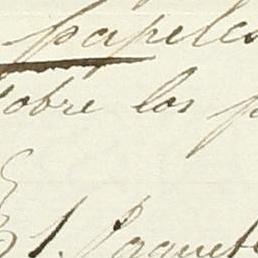 papeles
sobre los p
1. Paquete